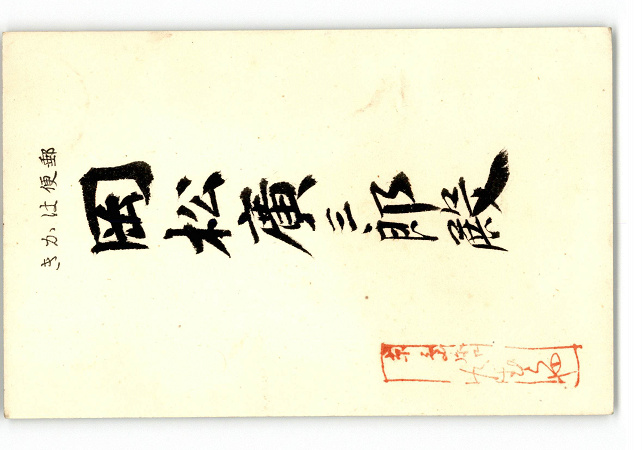 郵便はかき
岡松廣三郎殿